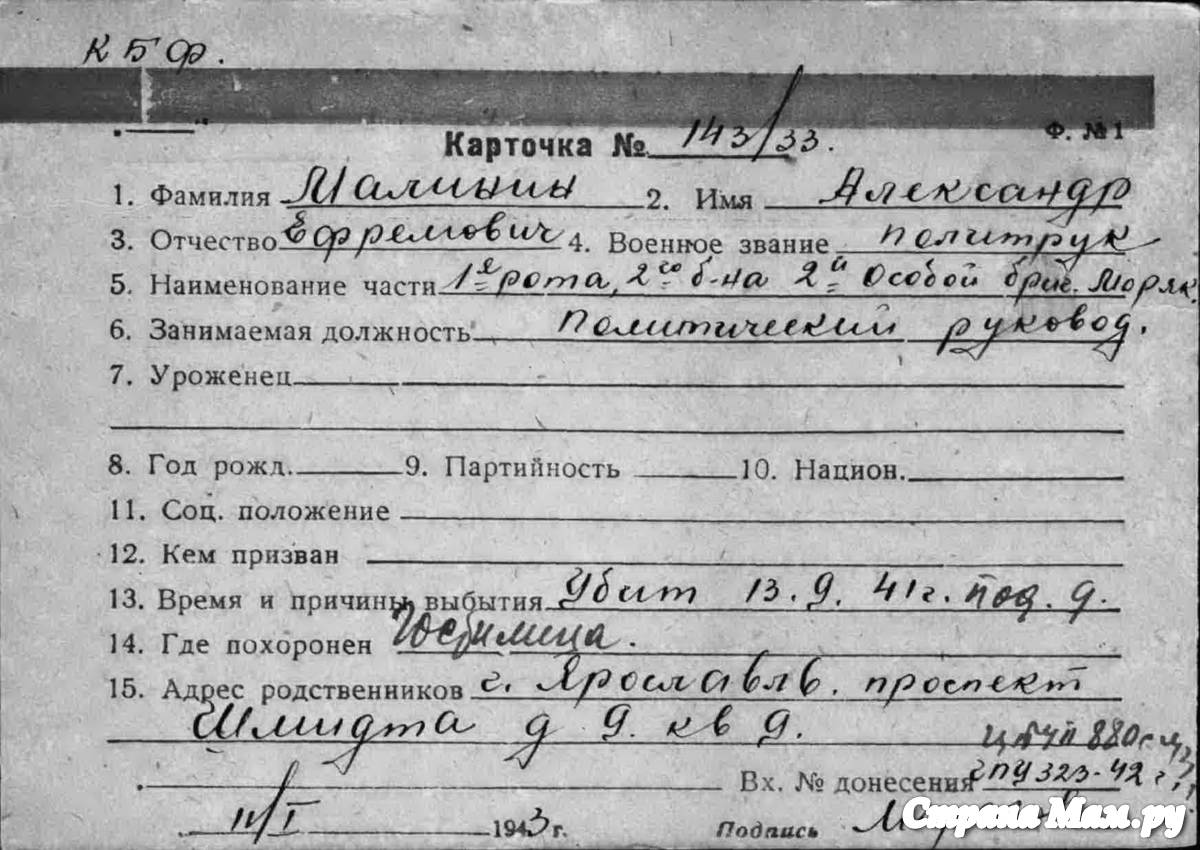 КБФ.
Ф. №1
Карточка № 143/33.
1. Фамилия Малинин 2. Имя Александр
3. Отчество Ефремович 4. Военное звание политрук
5. Наименование части 1я рота, 2го б-на 2й Особой бриг. Моряк
6. Занимаемая должность Политический руковод.
7. Уроженец
8. Год рожд. 9. Партийность 10. Национ.
11. Соц. положение
12. Кем призван
13. Время и причины выбытия Убит 13.9.41г. под. д.
14. Где похоронен Гостилица.
15. Адрес родственников г. Ярославль. проспект
Шмидта д 9. кв 9.
880с
Вх. № донесения ГПУ 323-42г.
11/I 1943 г. Подпись
Страна Мам.ру